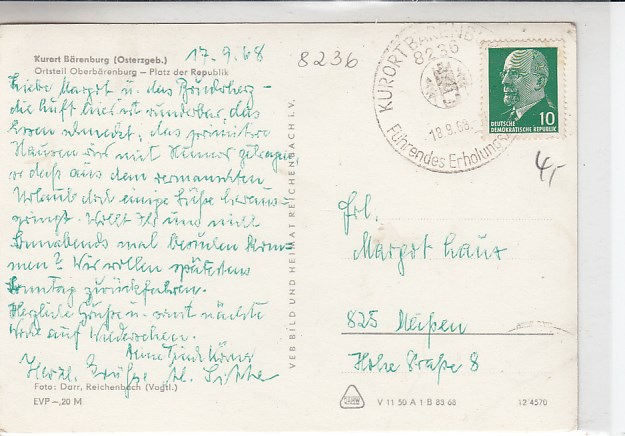 Kurort Bärenburg (Osterzgeb.)
Ortsteil Oberbärenburg – Platz der Republik
17.9.68
8236
Liebe Margot u. das
die Luft hier ist wunderbar, das
das primitive
Hausen wir mit Humor
so daß aus dem
Urlaub doch einige
springt. Wollt Ihr uns nicht
Sonnabends mal besuchen kom-
men? Wir wollen spätestens
Sonntag zurückfahren.
Herzliche Grüße u. sonst nächste
Woche auf Wiedersehen.
Herzl. Grüße
Foto: Darr, Reichenbach (Vogtl.)
EVP –,20 M
VEB BILD UND HEIMAT REICHENBACH i. V.
KURORT BÄRENBURG
8236
18.9.68
Führendes Erholungs
DEUTSCHE
DEMOKRATISCHE REPUBLIK
10
4,-
Frl.
Margot
825 Meißen
Hohe Straße 8
V 11 50 A 1 B 83 68
12 4570